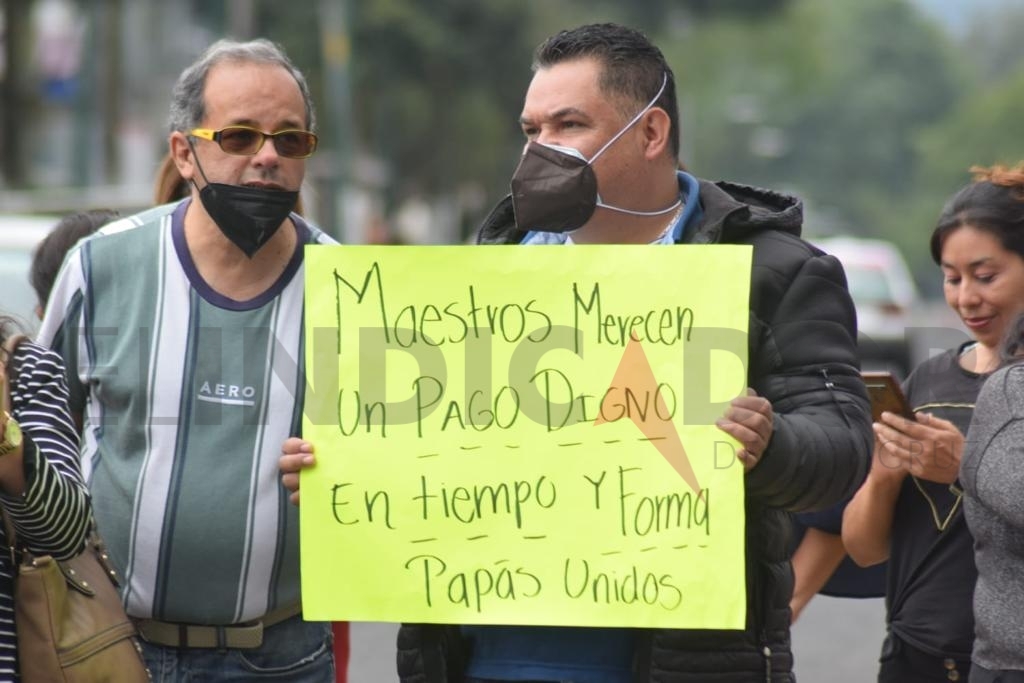 Maestros Merecen
Un PAGO DIGNO
En tiempo Y Forma
Papás Unidos
AERO
EL INDICADOR